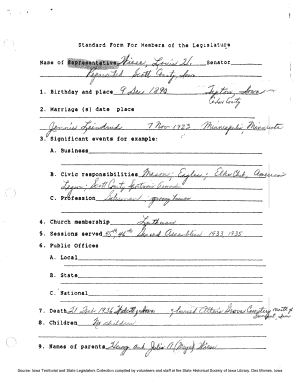 Standard Form For Members of the Legislature
Name of Representative Wiese, Louis H. Senator
Represented Scott County, Iowa
1. Birthday and place 9 Dec 1890 Tipton, Iowa
Cedar County
2. Marriage (s) date place
Jennie 7 Nov 1923 Minneapolis Minnesota
3. Significant events for example:
A. Business
B. Civic responsibilities Mason; Eagles; Elks Club, American
Legion; Scott County
C. Profession Salesman
4. Church membership Lutheran
5. Sessions served 45th, 46th General Assemblies 1933 1935
6. Public Offices
A. Local
B. State
C. National
7. Death 21 1936 Iowa Cemetery
8. Children No children
9. Names of parents and Julia A. Wiese
Source: Iowa Territorial and State Legislators Collection compiled by volunteers and staff at the State Historical Society of Iowa Library, Des Moines, Iowa.